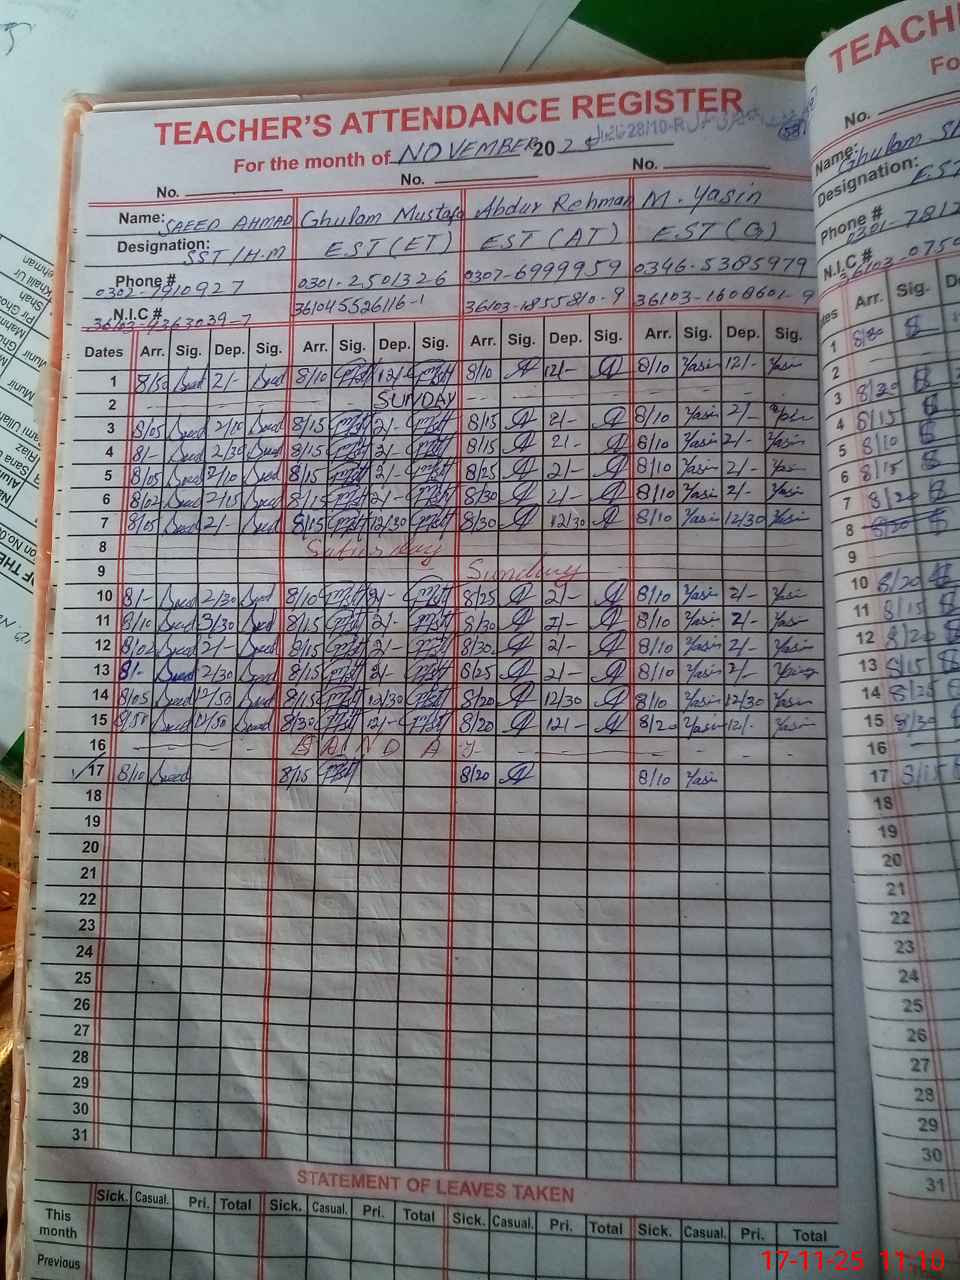 TEACHER'S ATTENDANCE REGISTER
For the month of NOVEMBER 202
No. No. No.
Name: SAEED AHMAD Ghulam Mustafa Abdur Rehman M. Yasin
Designation: SST/H.M EST(ET) EST(AT) EST(G)
Phone # 0302-7910927 0301-2501326 0307-6999959 0346-5385979
N.I.C # 36103-9363039-7 361045526116-1 36103-1855810-9 36103-1608601-9
Dates Arr. Sig. Dep. Sig. Arr. Sig. Dep. Sig. Arr. Sig. Dep. Sig. Arr. Sig. Dep. Sig.
1 8/50 Saeed 2/- Saeed 8/10 12/- 8/10 12/- 8/10 Yasin 12/- Yasin
2 SUNDAY
3 8/05 Saeed 2/10 Saeed 8/15 2/- 8/15 2/- 8/10 Yasin 2/-
4 8/- Saeed 2/30 Saeed 8/15 2/- 8/15 2/- 8/10 Yasin 2/- Yasin
5 8/05 Saeed 2/10 Saeed 8/15 2/- 8/25 2/- 8/10 Yasin 2/- Yasin
6 8/02 Saeed 2/15 Saeed 8/15 2/- 8/30 2/- 8/10 Yasin 2/- Yasin
7 8/05 Saeed 2/- Saeed 8/15 12/30 8/30 12/30 8/10 Yasin 12/30 Yasin
8 Saturday
9 Sunday
10 8/- Saeed 2/30 Saeed 8/10 2/- 8/25 2/- 8/10 Yasin 2/- Yasin
11 8/10 Saeed 3/30 Saeed 8/15 2/- 8/30 2/- 8/10 Yasin 2/- Yasin
12 8/02 Saeed 2/- Saeed 8/15 2/- 8/30 2/- 8/10 Yasin 2/- Yasin
13 8/- Saeed 2/30 Saeed 8/15 2/- 8/25 2/- 8/10 Yasin 2/-
14 8/05 Saeed 12/50 Saeed 8/15 12/30 8/20 12/30 8/10 Yasin 12/30 Yasin
15 8/50 Saeed 12/50 Saeed 8/30 12/- 8/20 12/- 8/20 Yasin 12/- Yasin
16 SUNDAY
17 8/10 Saeed 8/15 8/20 8/10 Yasin
18
19
20
21
22
23
24
25
26
27
28
29
30
31
STATEMENT OF LEAVES TAKEN
Sick. Casual. Pri. Total Sick. Casual. Pri. Total Sick. Casual. Pri. Total Sick. Casual. Pri. Total
This month
Previous
TEACH
Fo
No.
Name: Ghulam
Designation: EST
Phone # 0301-7812
N.I.C # 36103-075
Arr. Sig.
1 8/20
2
3 8/20
4 8/15
5 8/10
6 8/15
7 8/20
8 8/30
9
10 8/20
11 8/15
12 8/20
13 8/15
14 8/25
15 8/30
16
17 8/15
18
19
20
21
22
23
24
25
26
27
28
29
30
31
17-11-25 11:10